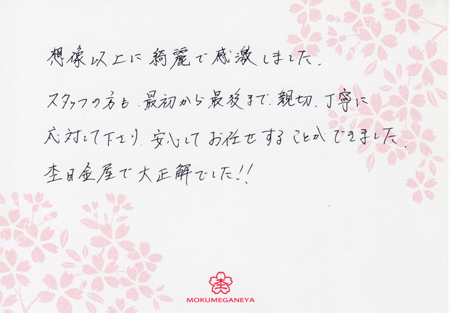 想像以上に綺麗で感激しました.
スタッフの方も、最初から最後まで、親切、丁寧に
応対して下さり、安心してお任せすることができました.
杢目金屋で大正解でした!!
杢
MOKUMEGANEYA